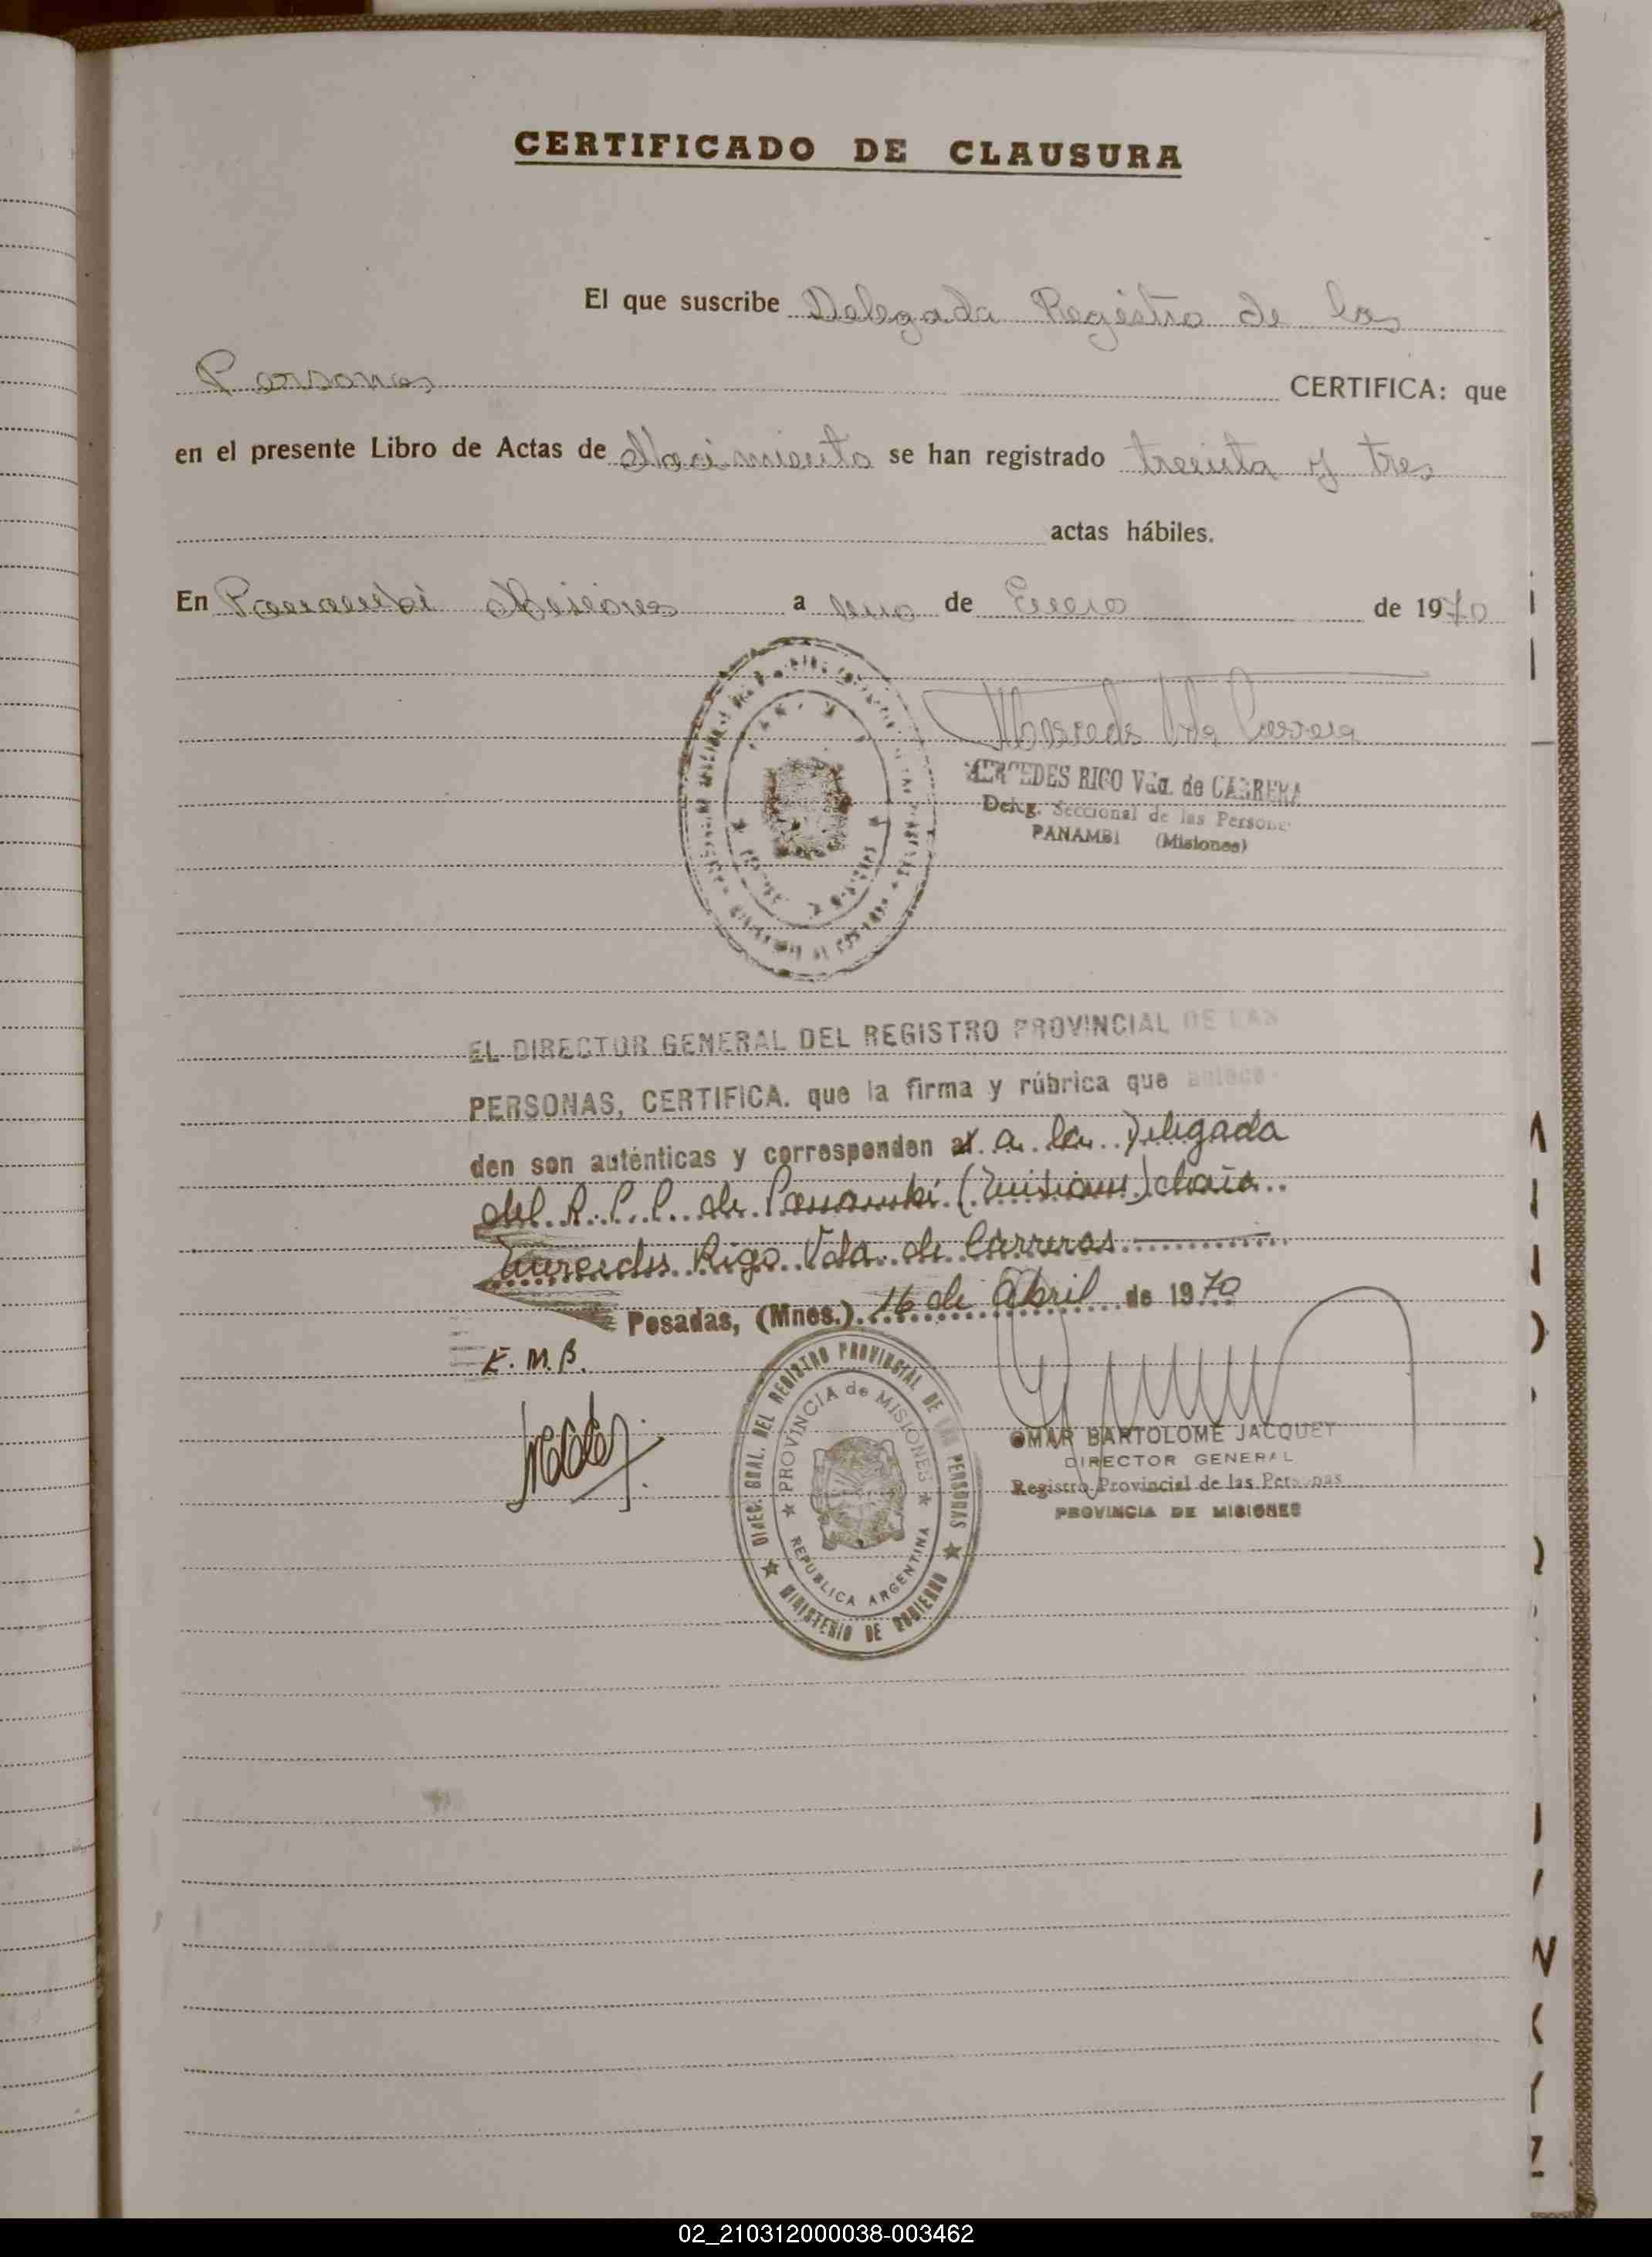 CERTIFICADO DE CLAUSURA
El que suscribe Delegada Registro de las
Personas CERTIFICA: que
en el presente Libro de Actas de Nacimiento se han registrado treinta y tres
actas hábiles.
En Panambi Misiones a uno de Enero de 1970
Mercedes Vda Carrera
MERCEDES RICO Vda. de CARRERA
Deleg. Seccional de las Persona
PANAMBI (Misiones)
EL DIRECTOR GENERAL DEL REGISTRO PROVINCIAL DE LAS
PERSONAS, CERTIFICA. que la firma y rúbrica que antece-
den son auténticas y corresponden al a la Delegada
del R.P.P. de Panambí (Misiones) doña
Mercedes Rigo Vda. de Carreras
Posadas, (Mnes.) 16 de Abril de 1970
E. M. B.
DIREC. GRAL. DEL REGISTRO PROVINCIAL DE LAS PERSONAS
PROVINCIA de MISIONES
REPUBLICA ARGENTINA
MINISTERIO DE GOBIERNO
OMAR BARTOLOME JACQUET
DIRECTOR GENERAL
Registro Provincial de las Personas
PROVINCIA DE MISIONES
02_210312000038-003462